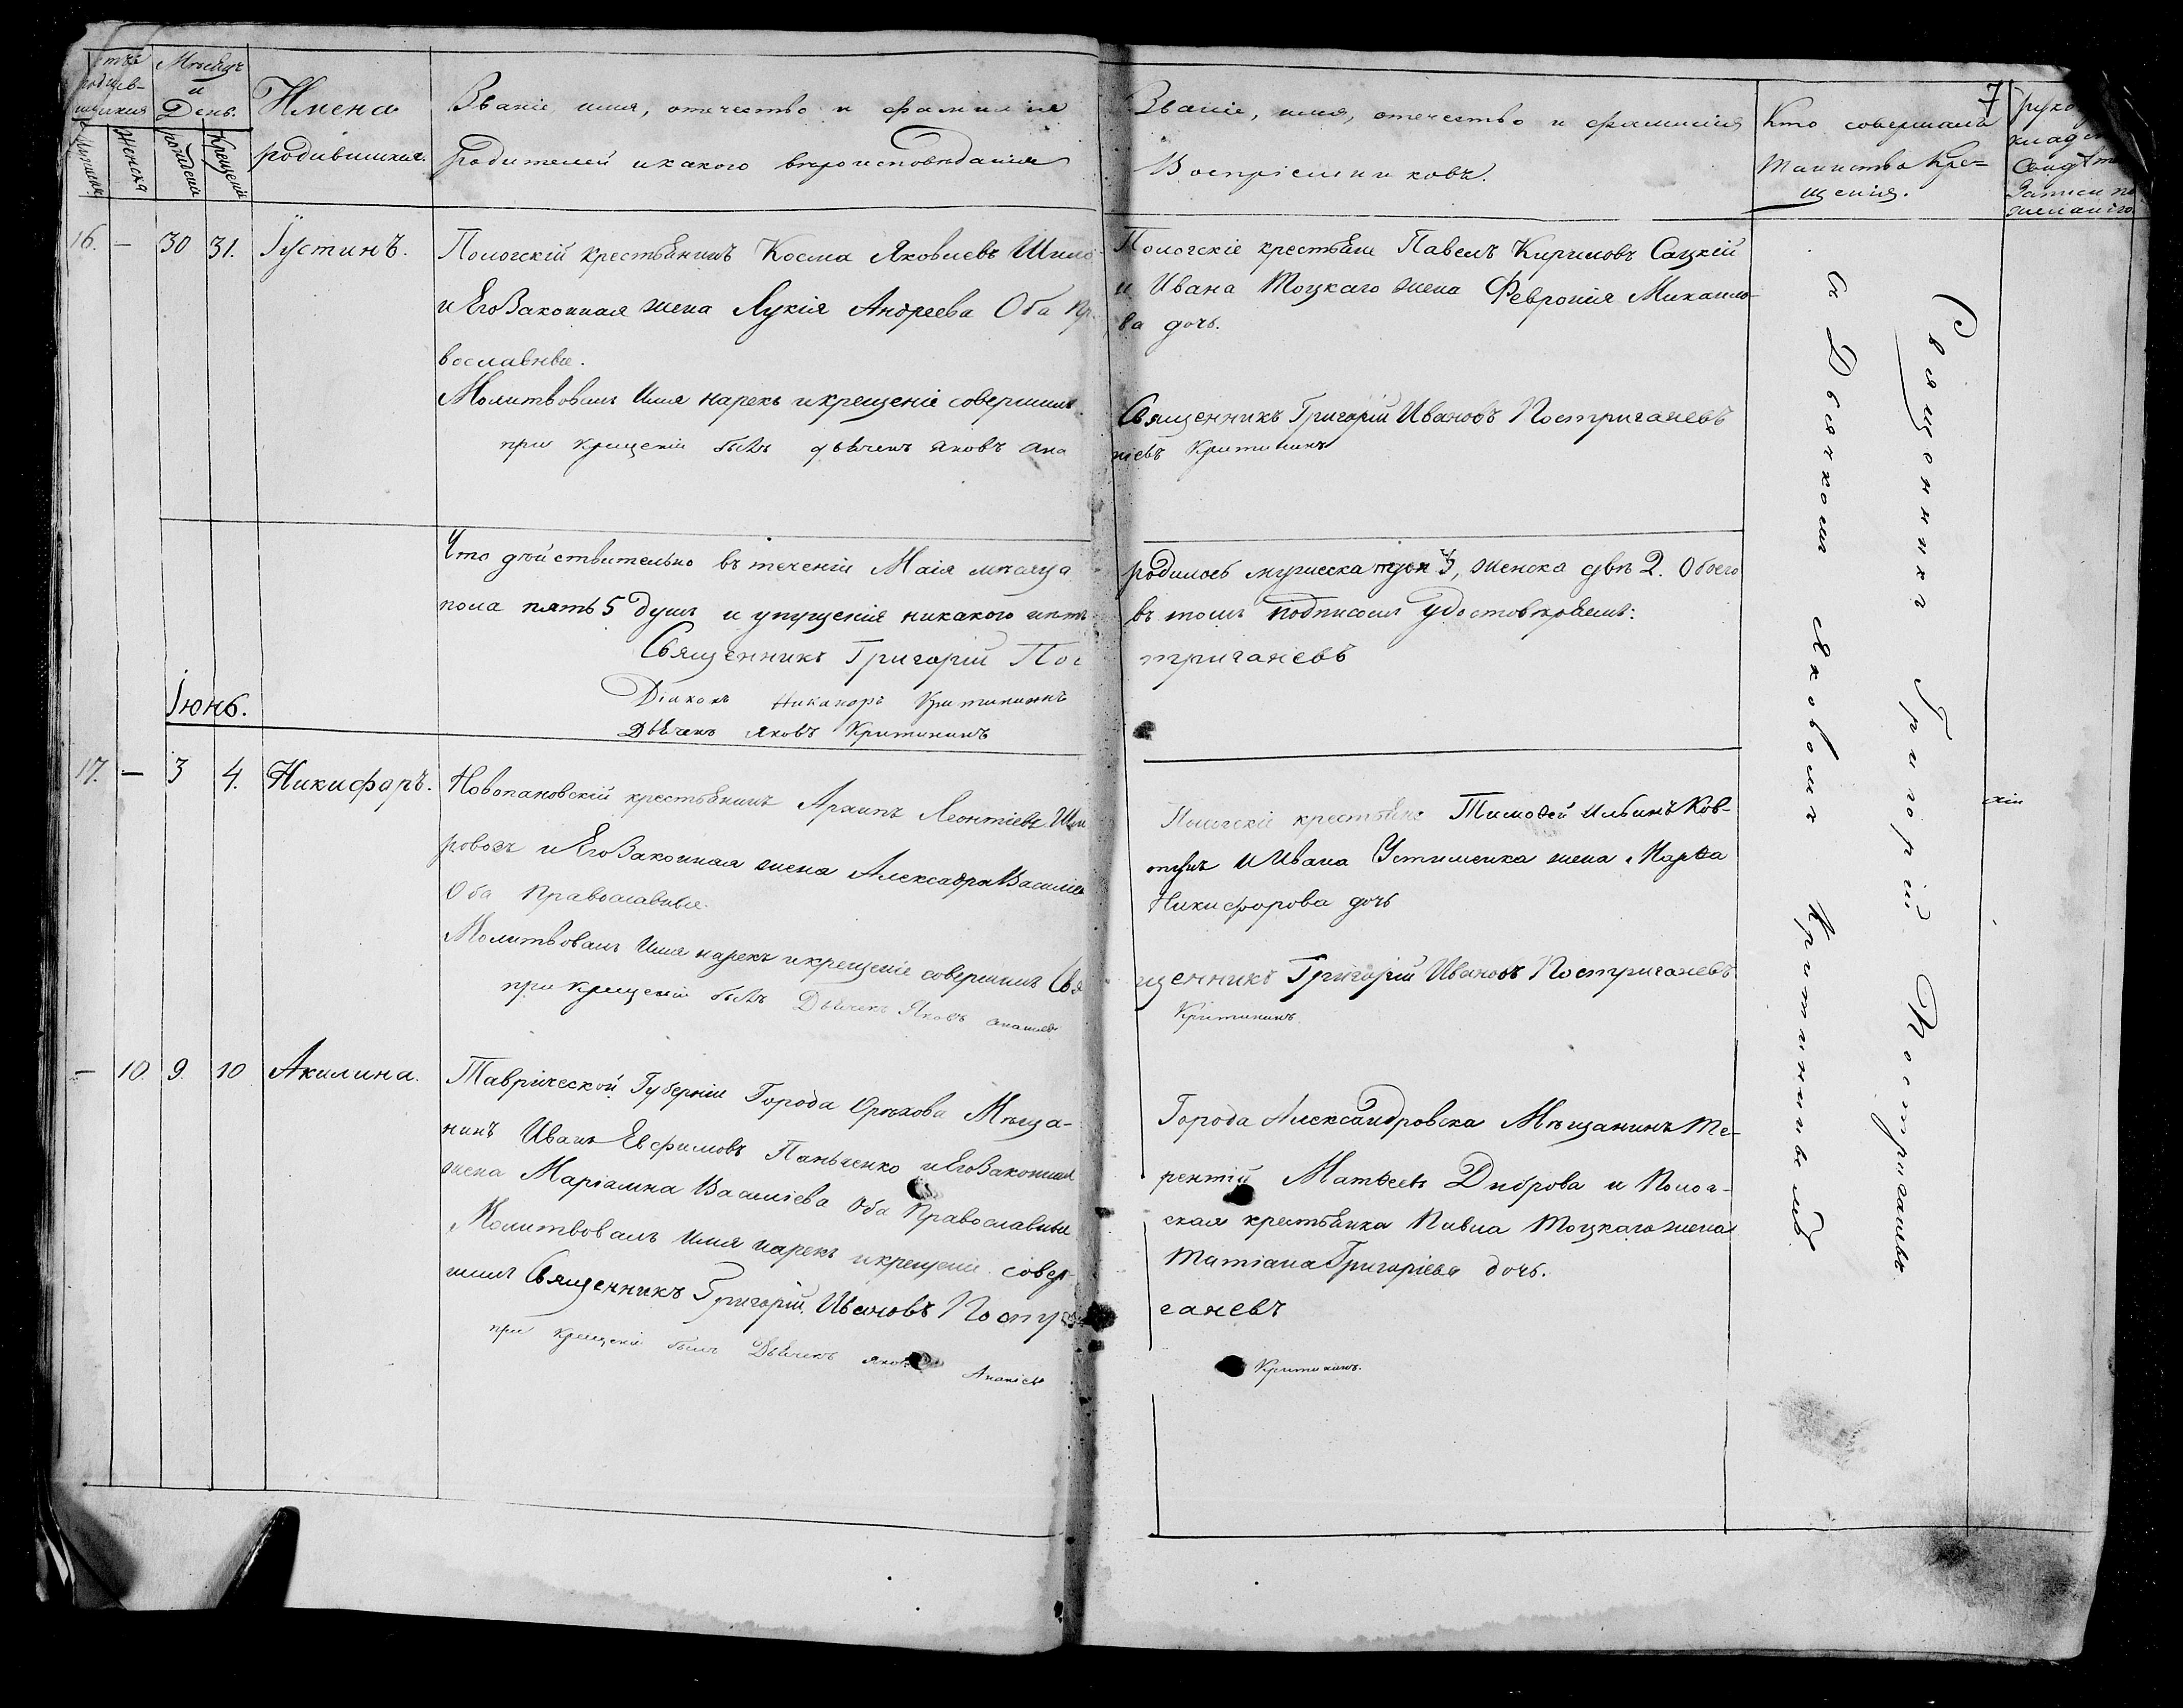 Мѣсяцъ
и
День.
Имена
родившихся.
Званіе, имя, отечество и фамилія
родителей и какого вѣроисповѣданія
Женска
рожденія
Крещенія
16. — 30 31. Іустинъ.
Пологскій крестьянинъ Косма Яковлевъ
и Его Законная жена Лукія Андреева Оба Пр
вославные.
Молитвовалъ Имя нарекъ и крещеніе совершилъ
при крещеніи былъ дьячекъ Яковъ Ана
Что дѣйствительно въ теченіи Маія мѣсяца
пола пять 5 душъ и упущенія никакого нѣтъ
Священникъ Григорій Пос
Діаконъ Никаноръ Критининъ
Дьячекъ Яковъ Критининъ
Іюнь.
17. — 3 4. Никифоръ.
Новопановскій крестьянинъ Архипъ Леонтіевъ
и Его Законная жена Александра Василіе
Оба Православные.
Молитвовалъ Имя нарекъ и крещеніе совершилъ Свя
при крещеніи былъ Дьячекъ Яковъ Ананіевъ
— 10. 9. 10 Акилина.
Таврической Губерніи Города Орѣхова Мѣща-
нинъ Иванъ Евфимовъ Панченко и Его Законная
жена Маріамна Василіева Оба Православные
Молитвовалъ Имя нарекъ и крещеніе совер-
шилъ Священникъ Григорій Ивановъ Постри
при крещеніи былъ Дьячекъ Яковъ Ананіевъ
7
Званіе, имя, отечество и фамилія
Воспріемниковъ.
Кто совершалъ
таинство Кре-
щенія.
Пологскіе крестьяне Павелъ Кириловъ Сацкій
и Ивана Тоцкаго жена Февронія Михаило-
ва дочь.
Священникъ Григорій Ивановъ Постриганевъ
ніевъ Критининъ
родилось мужеска три 3, женска двѣ 2. Обоего
въ томъ подписомъ удостовѣряемъ:
триганевъ
Пологскіе крестьяне Тимофей Ильинъ Ков-
тунъ и Ивана Устименка жена Марѳа
Никифорова дочь
щенникъ Григорій Ивановъ Постриганевъ
Критининъ.
Города Александровска Мѣщанинъ Те-
рентій Матѳеевъ Диброва и Полог-
ская крестьянка Павла Тоцкаго жена
Татіана Григоріева дочь.
ганевъ
Критининъ.
Священникъ Григорій Постриганевъ
съ Дьячкомъ Яковомъ Критининымъ